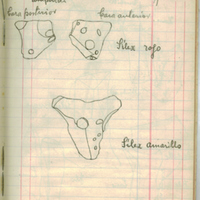 Cara posterior Cara anterior
Silex rojo
Silex amarillo